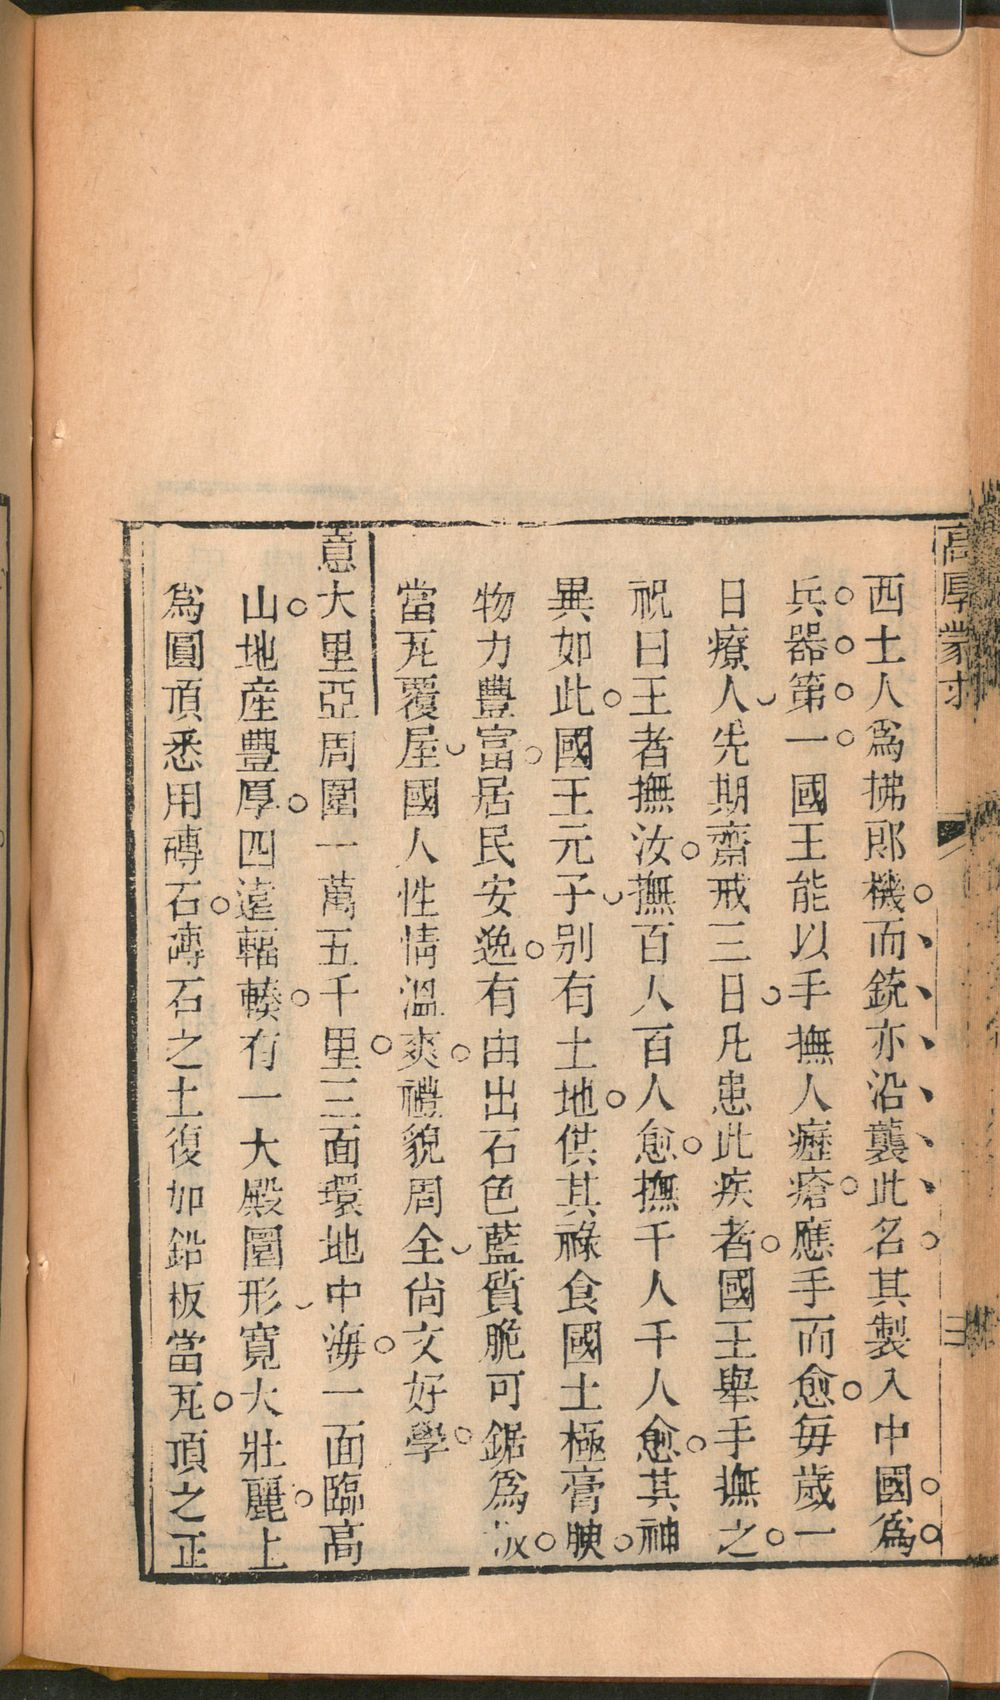 高厚蒙求
三
西土人爲拂郎機而銃亦沿襲此名其製入中國爲
兵器第一國王能以手撫人瘧瘡應手而愈每歲一
日療人先期齋戒三日凡患此疾者國王舉手撫之
祝曰王者撫汝撫百人百人愈撫千人千人愈其神
異如此國王元子别有土地供其祿食國土極膏腴
物力豐富居民安逸有山出石色藍質脆可鋸爲板
當瓦覆屋國人性情溫爽禮貌周全尙文好學
意大里亞周圍一萬五千里三面環地中海一面臨高
山地産豐厚四遠輻輳有一大殿圜形寬大壯麗上
爲圓頂悉用磚石磚石之上復加鉛板當瓦頂之正